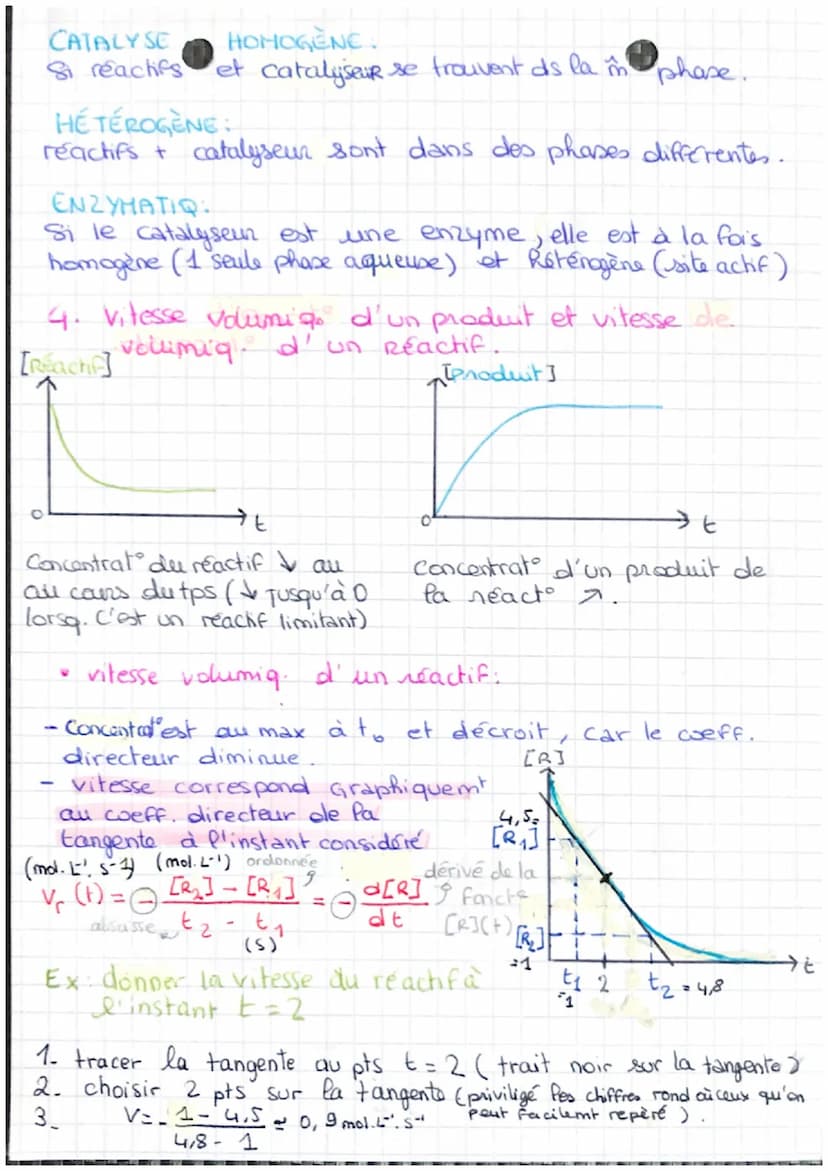 CATALYSE HOMOGÈNE :
Si réactifs et catalyseur se trouvent ds la m̂ phase.
HÉTÉROGÈNE :
réactifs + catalyseur sont dans des phases différentes.
ENZYMATIQ.
Si le catalyseur est une enzyme, elle est à la fois
homogène (1 seule phase aqueuse) et hétérogène (site actif)
4. Vitesse volumiq° d'un produit et vitesse de
volumiq. d'un Réactif.
[Réactif]
[produit]
0
t
0
t
Concentrat° du réactif ↓ au
au cours du tps (↓ jusqu'à 0
lorsq. c'est un réactif limitant)
Concentrat° d'un produit de
la réact° ↗.
• vitesse volumiq. d'un réactif :
- Concentrat° est au max à t₀ et décroit, car le coeff.
directeur diminue.
- vitesse correspond Graphiquemt
au coeff. directeur de la
tangente à l'instant considéré
(mol. L⁻¹. s-1) (mol. L⁻¹) ordonnée
Vr (t) = - [R₂] - [R₁] / t₂ - t₁ = - d[R] / dt
dérivé de la
foncte
[R](t)
abscisse
(s)
[R]
4,5=
[R₁]
[R₂]
=1
t₁ 2 t₂ = 4,8
=1
t
Ex : donner la vitesse du réactif à
l'instant t = 2
1- tracer la tangente au pts t = 2 (trait noir sur la tangente)
2- choisir 2 pts sur la tangente (priviligé les chiffres rond où ceux qu'on
peut facilemt repéré).
3- V = - 1 - 4,5 / 4,8 - 1 ≃ 0,9 mol.L⁻¹.s⁻¹